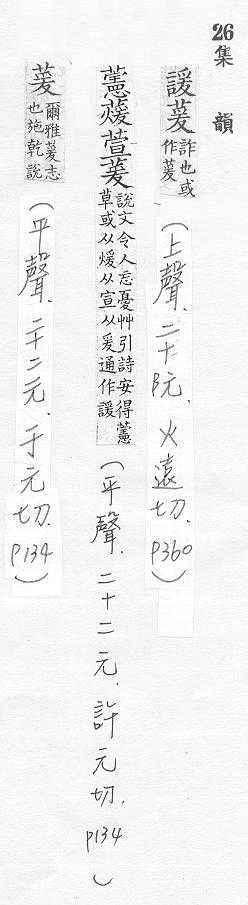 26
集韻
諼萲 詐也或
作萲
(上聲、二十阮、火遠切、P360)
藼蕿萱萲 說文令人忘憂艸引詩安得藼
草或从煖从宣从爰通作諼
(平聲、二十二元、許元切、P134)
萲 爾雅萲忘
也施乾說
(平聲、二十二元、于元切、P134)